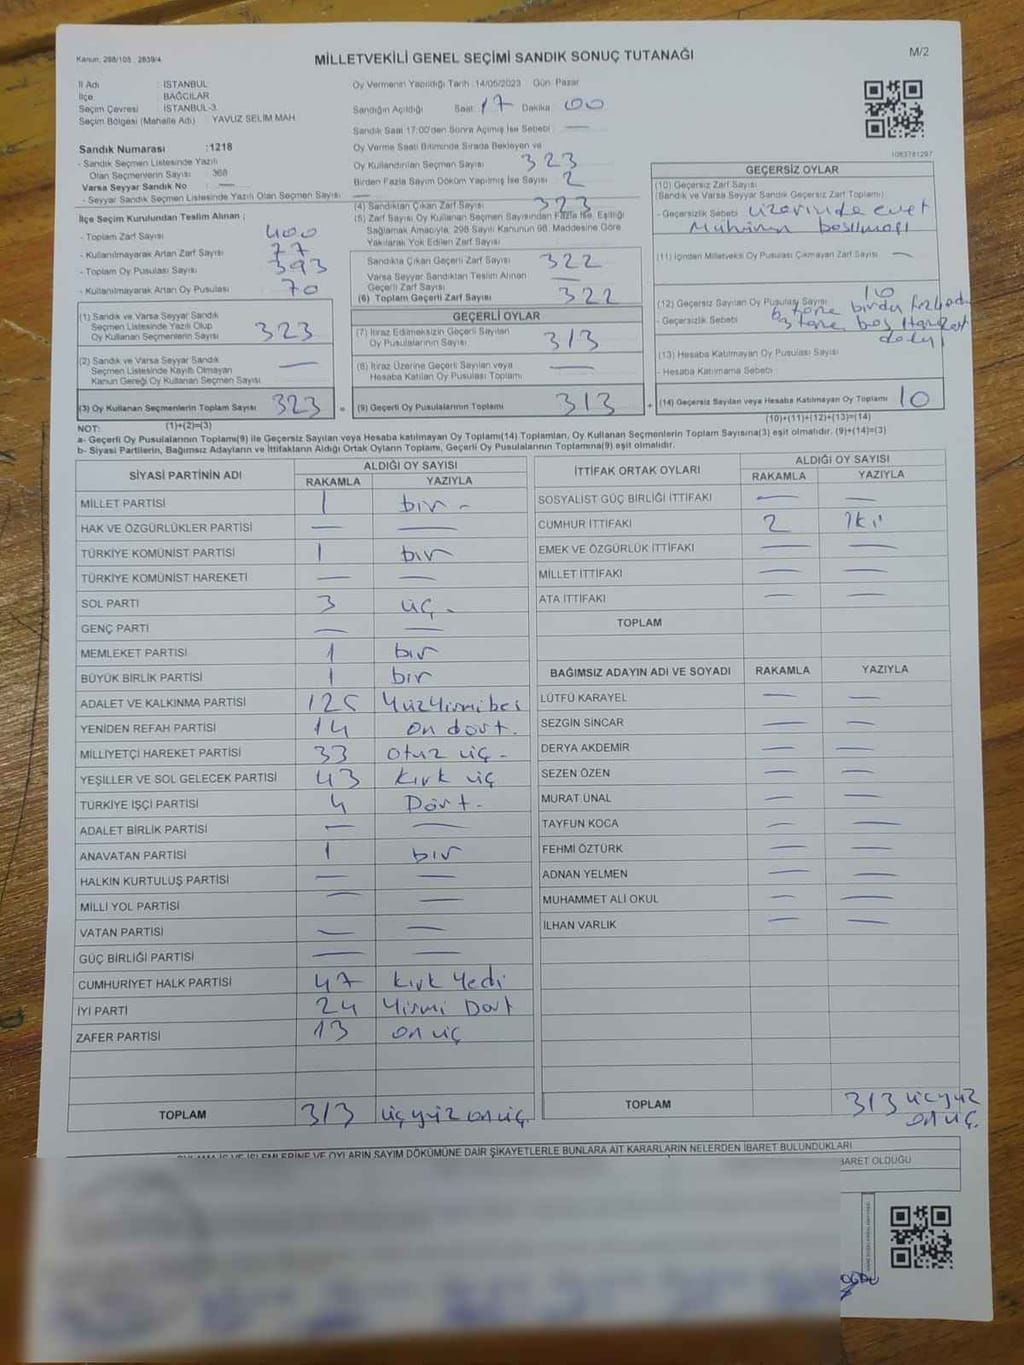 Kanun, 298/105 ; 2839/4
MİLLETVEKİLİ GENEL SEÇİMİ SANDIK SONUÇ TUTANAĞI
M/2
İl Adı : İSTANBUL
İlçe : BAĞCILAR
Seçim Çevresi : İSTANBUL-3
Seçim Bölgesi (Mahalle Adı) : YAVUZ SELİM MAH
Sandık Numarası :1218
- Sandık Seçmen Listesinde Yazılı
Olan Seçmenlerin Sayısı : 368
Varsa Seyyar Sandık No : —
- Seyyar Sandık Seçmen Listesinde Yazılı Olan Seçmen Sayısı : —
İlçe Seçim Kurulundan Teslim Alınan ;
- Toplam Zarf Sayısı : 400
- Kullanılmayarak Artan Zarf Sayısı : 77
- Toplam Oy Pusulası Sayısı : 393
- Kullanılmayarak Artan Oy Pusulası : 70
(1) Sandık ve Varsa Seyyar Sandık
Seçmen Listesinde Yazılı Olup
Oy Kullanan Seçmenlerin Sayısı 323
(2) Sandık ve Varsa Seyyar Sandık
Seçmen Listesinde Kayıtlı Olmayan
Kanun Gereği Oy Kullanan Seçmen Sayısı —
(3) Oy Kullanan Seçmenlerin Toplam Sayısı 323 =
Oy Vermenin Yapıldığı Tarih :14/05/2023 Gün: Pazar
Sandığın Açıldığı Saat: 17 Dakika: 00
Sandık Saat 17:00'den Sonra Açılmış İse Sebebi : —
Oy Verme Saati Bitiminde Sırada Bekleyen ve
Oy Kullandırılan Seçmen Sayısı : 323
Birden Fazla Sayım Döküm Yapılmış İse Sayısı : 2
(4) Sandıktan Çıkan Zarf Sayısı : 323
(5) Zarf Sayısı Oy Kullanan Seçmen Sayısından Fazla İse, Eşitliği
Sağlamak Amacıyla, 298 Sayılı Kanunun 98. Maddesine Göre
Yakılarak Yok Edilen Zarf Sayısı :
Sandıkta Çıkan Geçerli Zarf Sayısı : 322
Varsa Seyyar Sandıktan Teslim Alınan
Geçerli Zarf Sayısı : —
(6) Toplam Geçerli Zarf Sayısı : 322
GEÇERLİ OYLAR
(7) İtiraz Edilmeksizin Geçerli Sayılan
Oy Pusulalarının Sayısı : 313
(8) İtiraz Üzerine Geçerli Sayılan veya
Hesaba Katılan Oy Pusulası Toplamı : —
(9) Geçerli Oy Pusulalarının Toplamı 313 +
1083781297
GEÇERSİZ OYLAR
(10) Geçersiz Zarf Sayısı :
(Sandık ve Varsa Seyyar Sandık Geçersiz Zarf Toplamı)
- Geçersizlik Sebebi : üzerinde evet
mührünün basılması
(11) İçinden Milletvekili Oy Pusulası Çıkmayan Zarf Sayısı : —
(12) Geçersiz Sayılan Oy Pusulası Sayısı : 10
- Geçersizlik Sebebi : 6 tane birden
3 tane boş
(13) Hesaba Katılmayan Oy Pusulası Sayısı :
- Hesaba Katılmama Sebebi :
(14) Geçersiz Sayılan veya Hesaba Katılmayan Oy Toplamı 10
NOT: (1)+(2)=(3)
(10)+(11)+(12)+(13)=(14)
a- Geçerli Oy Pusulalarının Toplamı(9) ile Geçersiz Sayılan veya Hesaba katılmayan Oy Toplamı(14) Toplamları, Oy Kullanan Seçmenlerin Toplam Sayısına(3) eşit olmalıdır. (9)+(14)=(3)
b- Siyasi Partilerin, Bağımsız Adayların ve İttifakların Aldığı Ortak Oyların Toplamı, Geçerli Oy Pusulalarının Toplamına(9) eşit olmalıdır.
SİYASİ PARTİNİN ADI ALDIĞI OY SAYISI
RAKAMLA YAZIYLA
MİLLET PARTİSİ 1 bir -
HAK VE ÖZGÜRLÜKLER PARTİSİ — —
TÜRKİYE KOMÜNİST PARTİSİ 1 bir
TÜRKİYE KOMÜNİST HAREKETİ — —
SOL PARTİ 3 üç -
GENÇ PARTİ — —
MEMLEKET PARTİSİ 1 bir
BÜYÜK BİRLİK PARTİSİ 1 bir
ADALET VE KALKINMA PARTİSİ 125 Yüzyirmibes
YENİDEN REFAH PARTİSİ 14 on dört.
MİLLİYETÇİ HAREKET PARTİSİ 33 otuz üç -
YEŞİLLER VE SOL GELECEK PARTİSİ 43 Kırk üç
TÜRKİYE İŞÇİ PARTİSİ 4 Dört -
ADALET BİRLİK PARTİSİ — —
ANAVATAN PARTİSİ 1 bir
HALKIN KURTULUŞ PARTİSİ — —
MİLLİ YOL PARTİSİ — —
VATAN PARTİSİ — —
GÜÇ BİRLİĞİ PARTİSİ — —
CUMHURİYET HALK PARTİSİ 47 Kırk Yedi
İYİ PARTİ 24 Yirmi Dört
ZAFER PARTİSİ 13 on üç
TOPLAM 313 üçyüz onüç.
İTTİFAK ORTAK OYLARI ALDIĞI OY SAYISI
RAKAMLA YAZIYLA
SOSYALİST GÜÇ BİRLİĞİ İTTİFAKI — —
CUMHUR İTTİFAKI 2 İki
EMEK VE ÖZGÜRLÜK İTTİFAKI — —
MİLLET İTTİFAKI — —
ATA İTTİFAKI — —
TOPLAM
BAĞIMSIZ ADAYIN ADI VE SOYADI RAKAMLA YAZIYLA
LÜTFÜ KARAYEL — —
SEZGİN SİNCAR — —
DERYA AKDEMİR — —
SEZEN ÖZEN — —
MURAT ÜNAL — —
TAYFUN KOCA — —
FEHMİ ÖZTÜRK — —
ADNAN YELMEN — —
MUHAMMET ALİ OKUL — —
İLHAN VARLIK — —
TOPLAM 313 üçyüz
onüç.
İŞLEMLERİNE VE OYLARIN SAYIM DÖKÜMÜNE DAİR ŞİKAYETLERLE BUNLARA AİT KARARLARIN NELERDEN İBARET BULUNDUKLARI
İBARET OLDUĞU